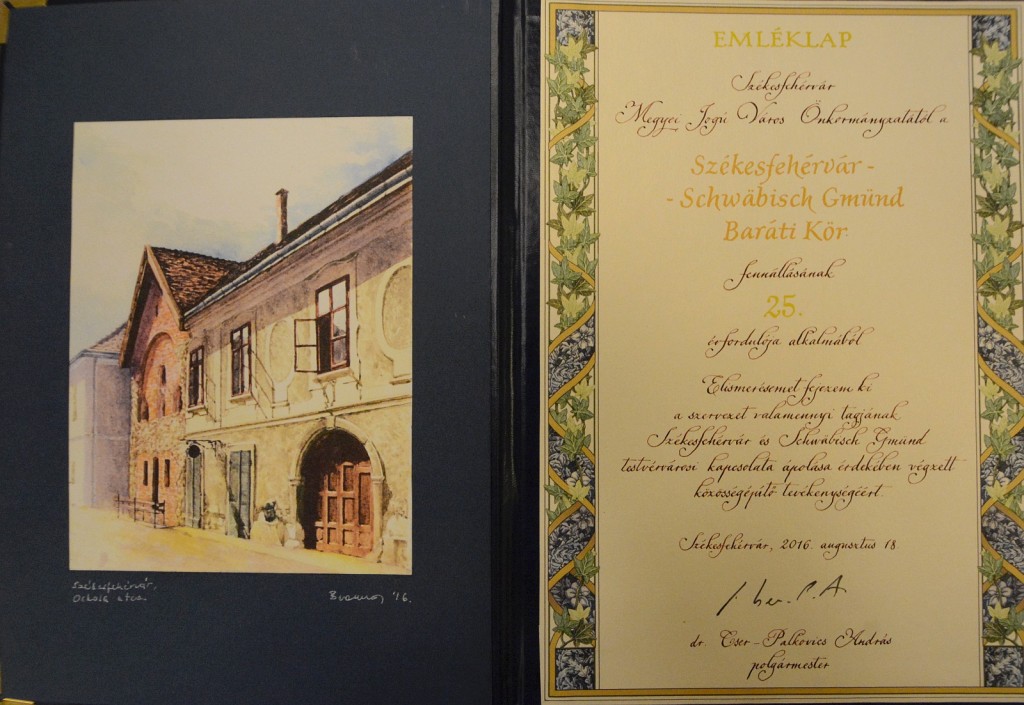 Székesfehérvár,
Oskola utca.
'16.
EMLÉKLAP
Székesfehérvár
Megyei Jogú Város Önkormányzatától a
Székesfehérvár -
- Schwäbisch Gmünd
Baráti Kör
fennállásának
25.
évfordulója alkalmából
Elismerésemet fejezem ki
a szervezet valamennyi tagjának
Székesfehérvár és Schwäbisch Gmünd
testvérvárosi kapcsolata ápolása érdekében végzett
közösségépítő tevékenységéért.
Székesfehérvár, 2016. augusztus 18.
dr. Cser-Palkovics András
polgármester